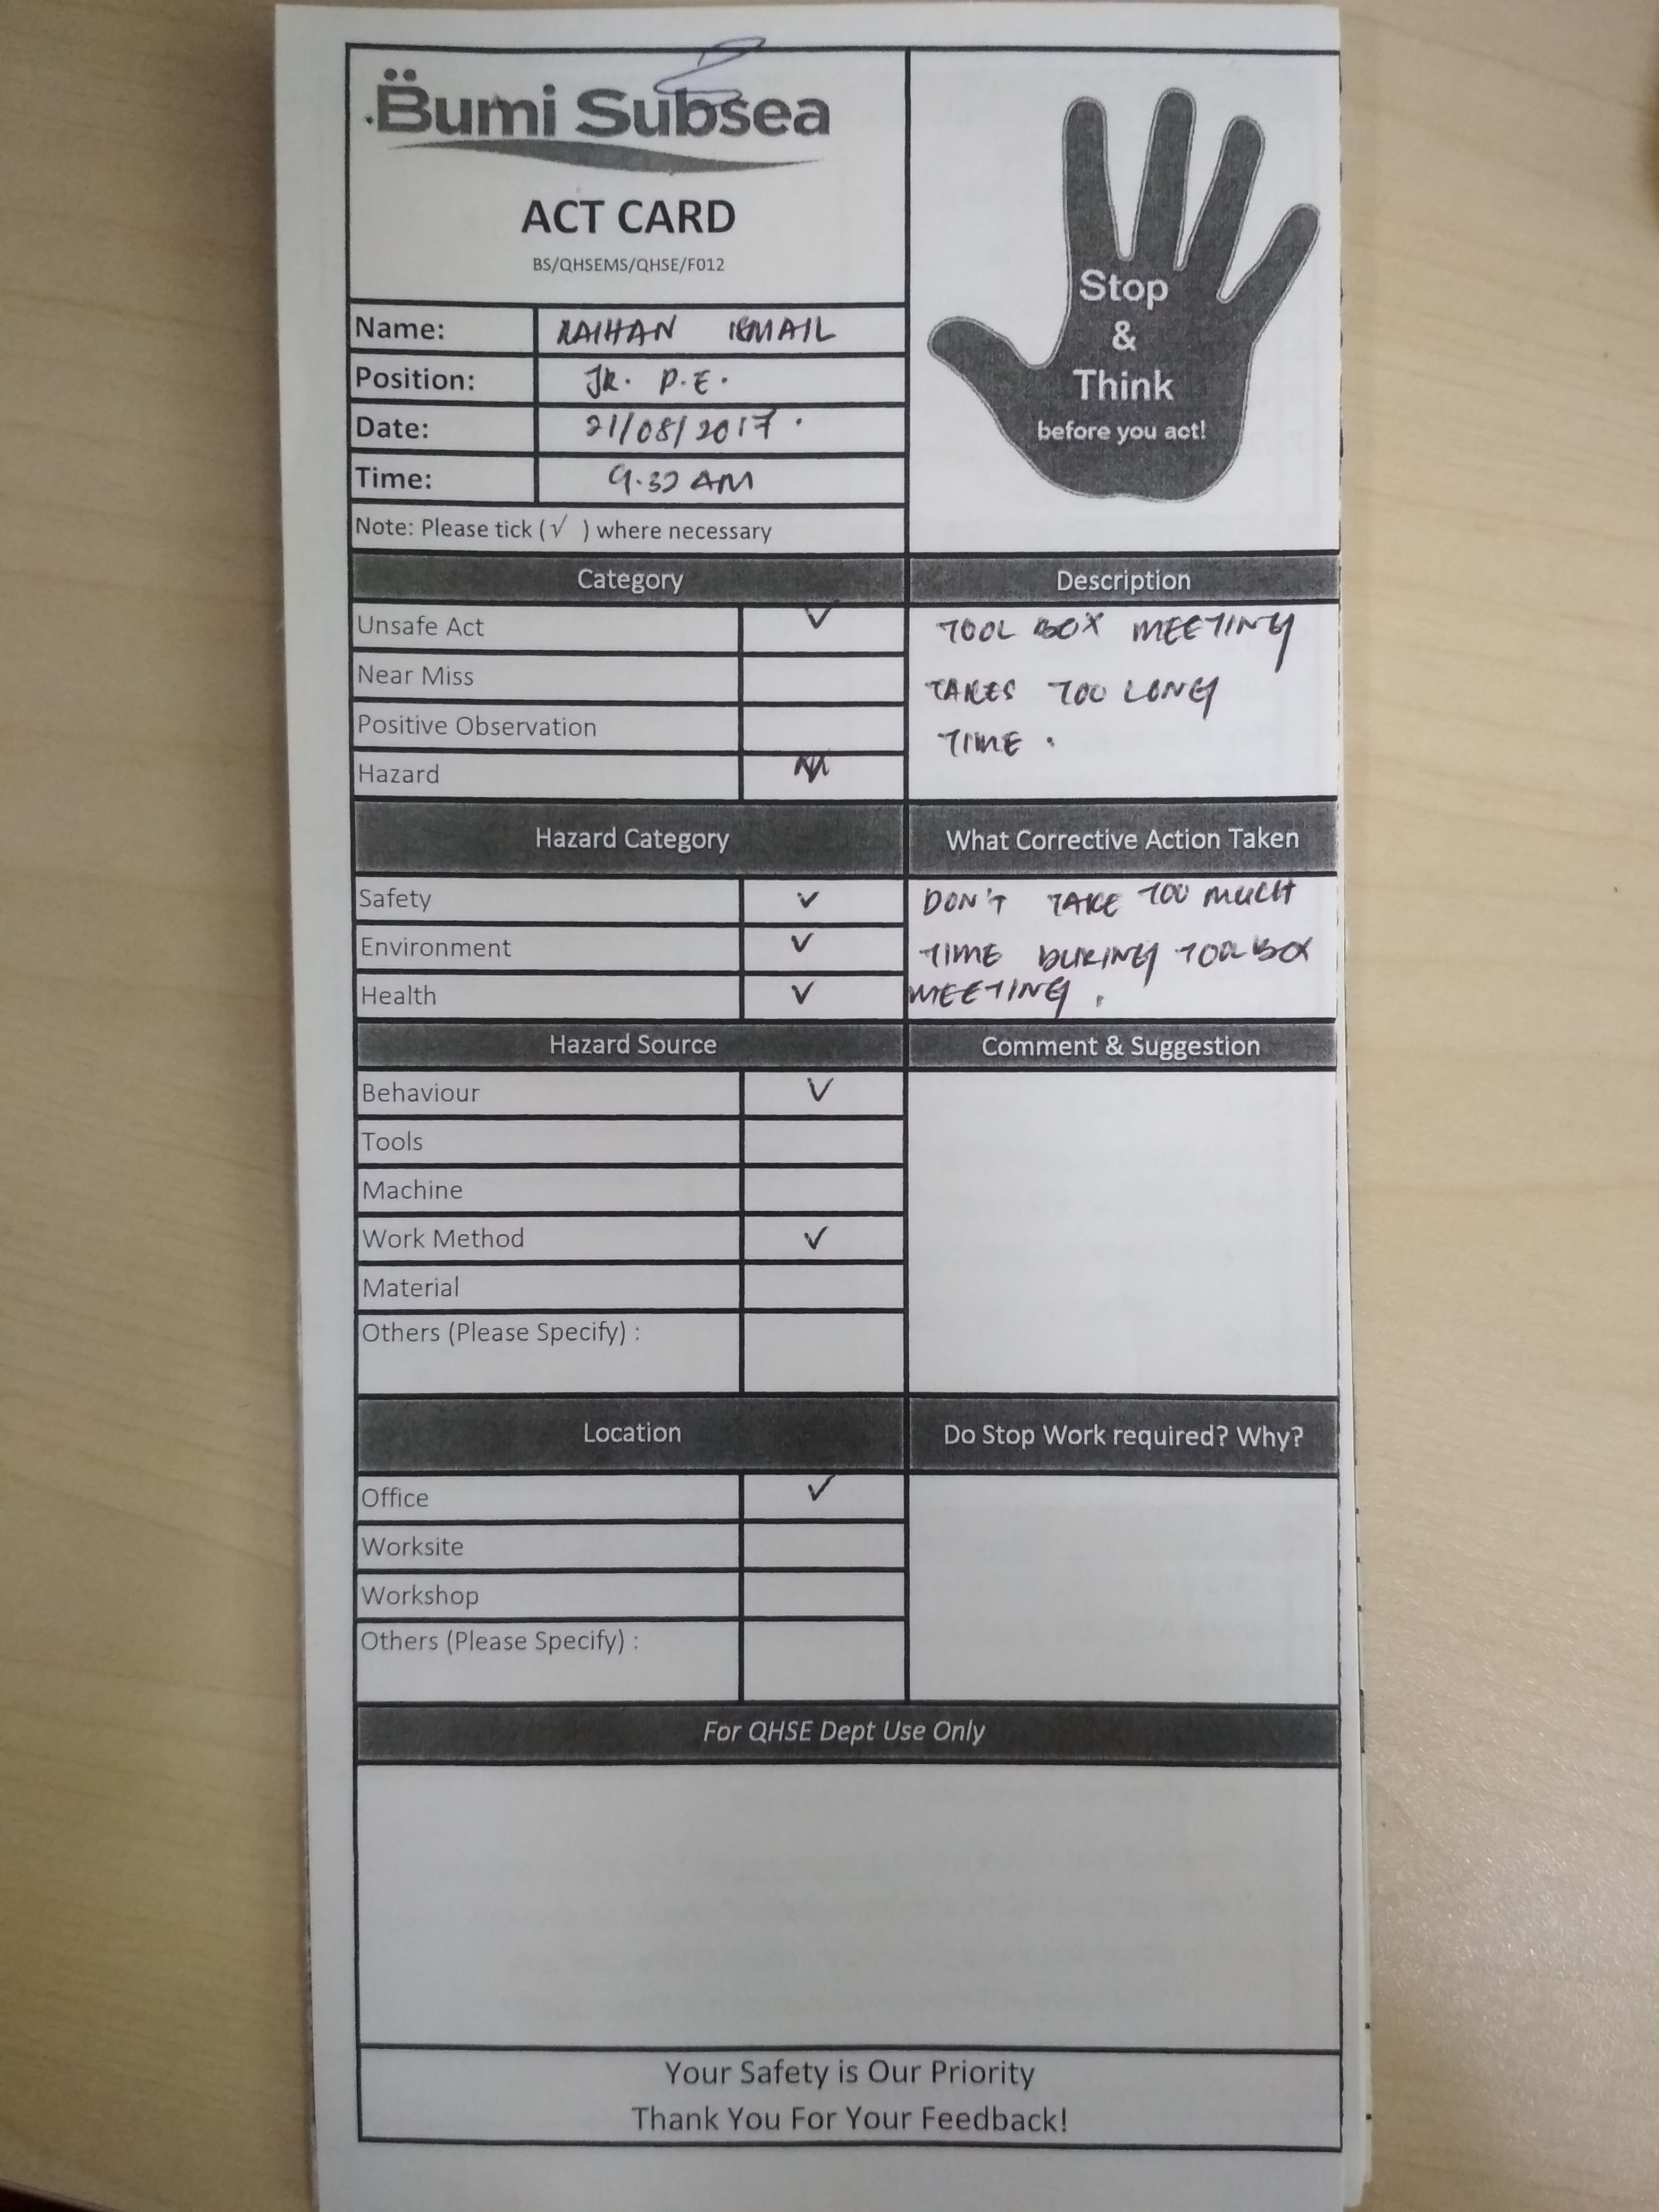 Bumi Subsea
ACT CARD
BS/QHSEMS/QHSE/F012
Stop
&
Think
before you act!
Name: RAIHAN ISMAIL
Position: JR. P.E.
Date: 21/08/2017.
Time: 9.30 AM
Note: Please tick (√ ) where necessary
Category
Unsafe Act √
Near Miss
Positive Observation
Hazard
Description
TOOL BOX MEETING
TAKES TOO LONG
TIME.
Hazard Category
Safety √
Environment √
Health √
What Corrective Action Taken
DON'T TAKE TOO MUCH
TIME DURING TOOLBOX
MEETING.
Hazard Source
Behaviour √
Tools
Machine
Work Method √
Material
Others (Please Specify) :
Comment & Suggestion
Location
Office √
Worksite
Workshop
Others (Please Specify) :
Do Stop Work required? Why?
For QHSE Dept Use Only
Your Safety is Our Priority
Thank You For Your Feedback!